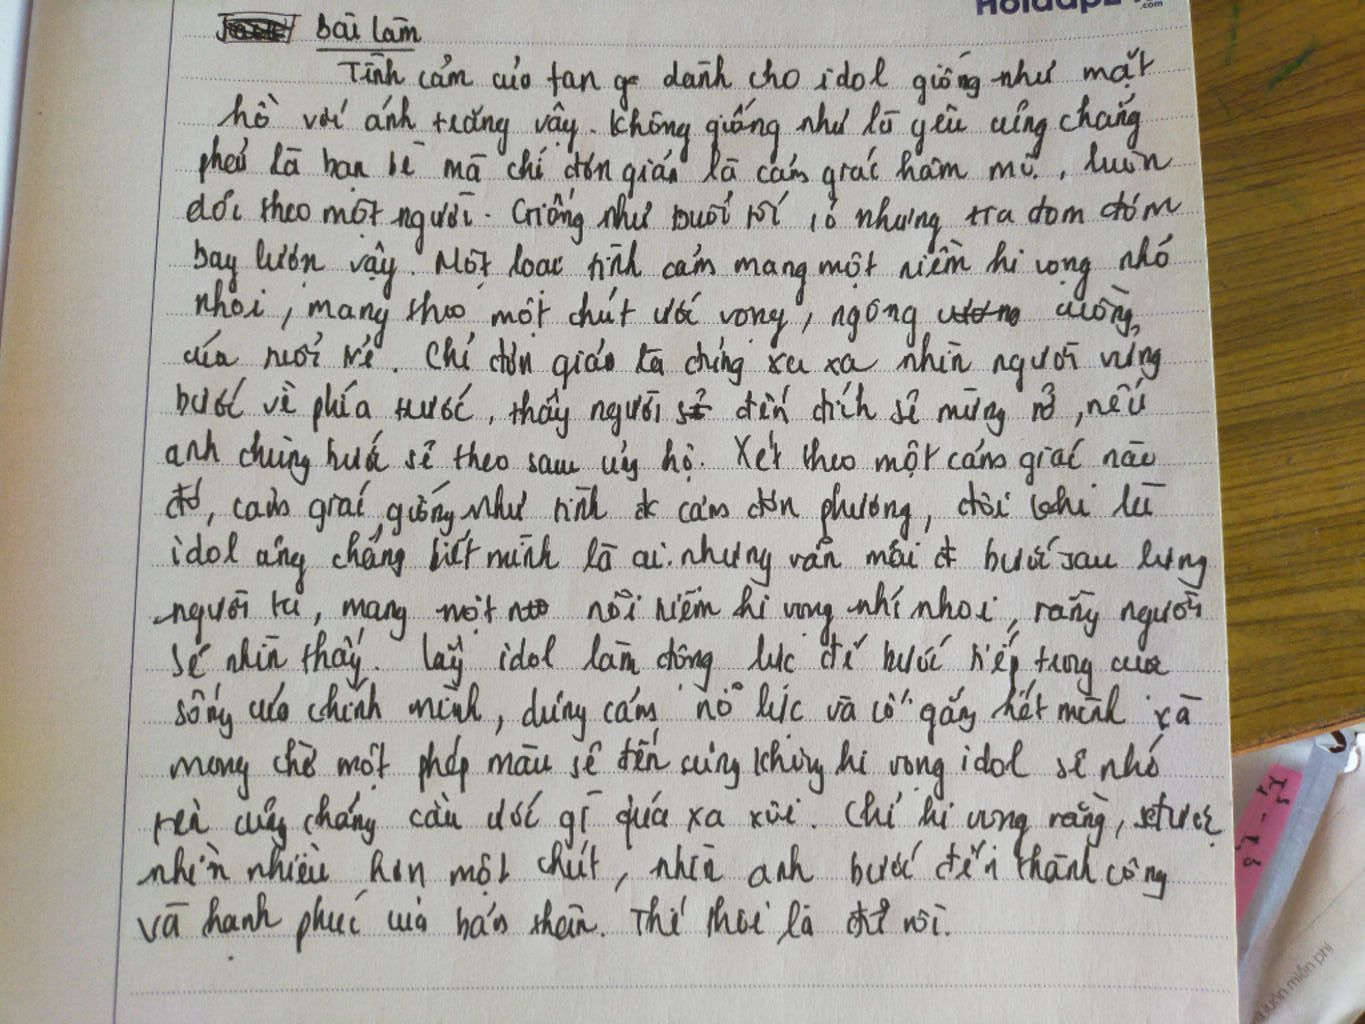 Bài làm
Tình cảm của fan dành cho idol giống như mặt
hồ với ánh trăng vậy. Không giống như là yêu cũng chẳng
phải là bạn bè mà chỉ đơn giản là cảm giác hâm mộ, luôn
dõi theo một người. Giống như buổi tối có nhưng tra đom đóm
bay lượn vậy. Một loại tình cảm mang một niềm hi vọng nhỏ
nhoi, mang theo một chút ước vọng, ngông cuồng
của tuổi trẻ. Chỉ đơn giản là đứng xa xa nhìn người vững
bước về phía trước, thấy người đến đích sẽ mừng rỡ, nếu
anh chùng bước sẽ theo sau ủng hộ. Xét theo một cảm giác nào
đó, cảm giác giống như tình cảm đơn phương, đôi khi là
idol cũng chẳng biết mình là ai. nhưng vẫn mãi bước sau lưng
người ta, mang một nỗi niềm hi vọng nhỉ nhoi, rằng người
sẽ nhìn thấy. Lấy idol làm động lực để bước tiếp trong cuộc
sống của chính mình, dũng cảm nỗ lực và cố gắng hết mình và
mong chờ một phép màu sẽ đến cũng không hi vọng idol sẽ nhớ
tên cũng chẳng cầu ước gì quá xa xôi. Chỉ hi vọng rằng, sẽ được
nhìn nhiều hơn một chút, nhìn anh bước đến thành công
và hạnh phúc của bản thân. Thế thôi là đủ rồi.
.com
luôn miễn phí